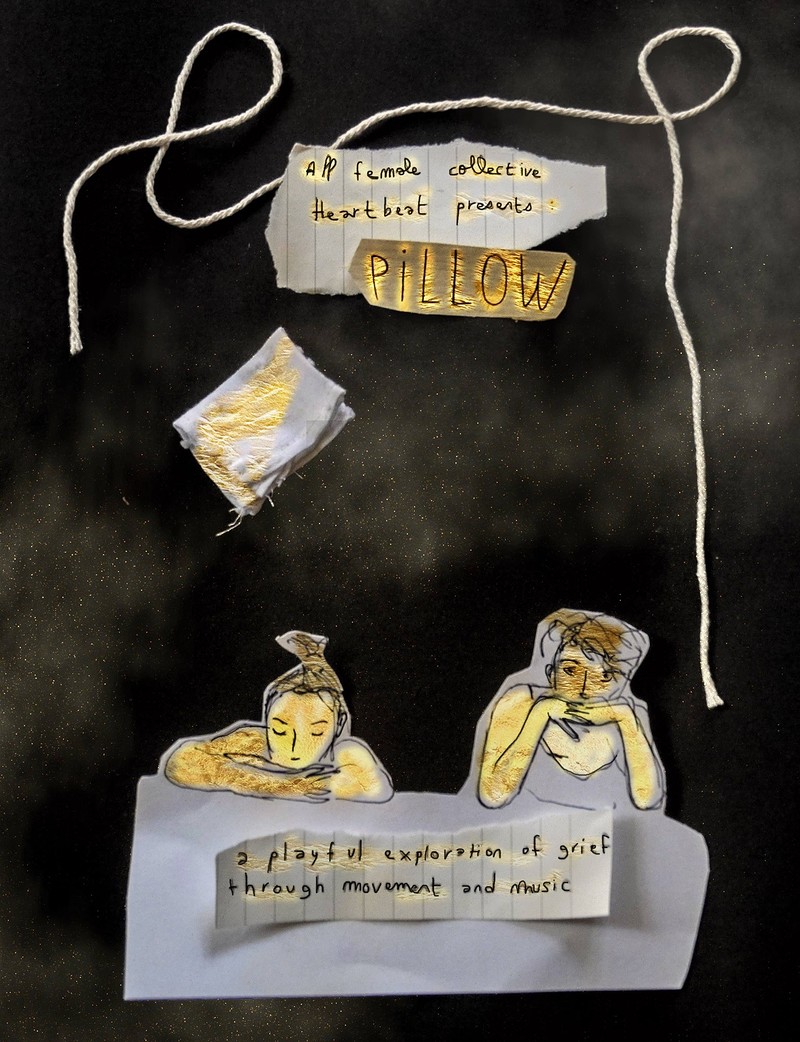 All female collective
Heartbeat presents:
PiLLOW
a playful exploration of grief
through movement and music